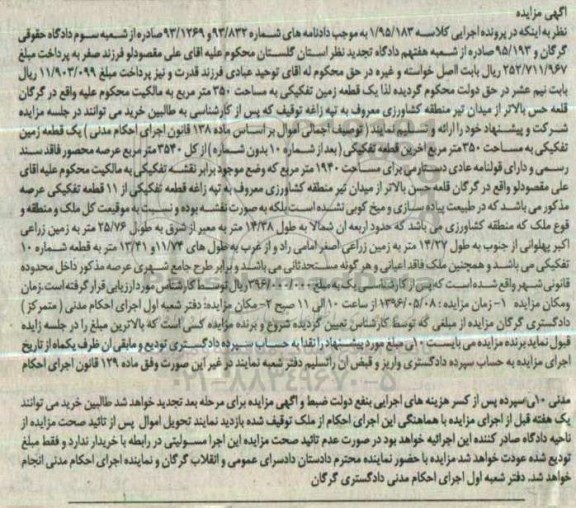 آگهی مزایده
نظر به اینکه در پرونده اجرایی کلاسه ۱/۹۵/۱۸۳ به موجب دادنامه های شماره ۹۳/۸۳۲ و ۹۳/۱۲۶۹ صادره از شعبه سوم دادگاه حقوقی
گرگان و ۹۵/۱۹۳ صادره از شعبه هفتهم دادگاه تجدید نظر استان گلستان محکوم علیه اقای علی مقصودلو فرزند صفر به پرداخت مبلغ
۲۵۲/۷۱۱/۹۶۷ ریال بابت اصل خواسته و غیره در حق محکوم له اقای توحید عبادی فرزند قدرت و نیز پرداخت مبلغ ۱۱/۹۰۳/۰۹۹ ریال
بابت نیم عشر در حق دولت محکوم گردیده لذا یک قطعه زمین تفکیکی به مساحت ۳۵۰ متر مربع به مالکیت محکوم علیه واقع در گرگان
قلعه حسن بالاتر از میدان تیر منطقه کشاورزی معروف به تپه زاغه توقیف که پس از کارشناسی به طالبین خرید می توانند در جلسه مزایده
شرکت و پیشنهاد خود را ارائه و تسلیم نمایند (توصیف اجمالی اموال بر اساس ماده ۱۳۸ قانون اجرای احکام مدنی) یک قطعه زمین
تفکیکی به مساحت ۳۵۰ متر مربع اخرین قطعه تفکیکی (بعد از شماره ۱۰ بدون شماره) از کل ۳۵۴۰ متر مربع عرصه محصور فاقد سند
رسمی و دارای قولنامه عادی دستنویس برای مساحت ۱۹۴۰ متر مربع که وضع موجود برابر نقشه تفکیکی به مالکیت محکوم علیه اقای
علی مقصودلو واقع در گرگان قلعه حسن بالاتر از میدان تیر منطقه کشاورزی معروف به تپه زاغه قطعه تفکیکی از ۱۱ قطعه تفکیکی عرصه
مذکور می باشد که در طبیعت پیاده سازی و میخ کوبی نشده است بلکه به صورت نقشه بوده و نسبت به موقیعت کل ملک و منطقه و
قوع ملک که منطقه کشاورزی می باشد که حدود اربعه ان شمالا به طول ۱۴/۳۸ متر به معبر از شرق به طول ۲۵/۷۶ متر به زمین زراعی
اکبر پهلوانی از جنوب به طول ۱۴/۲۷ متر به زمین زراعی اصغر امامی راد و از غرب به طول های ۱۱/۷۴ و ۱۳/۴۱ متر به قطعه شماره ۱۰
تفکیکی می باشد و همچنین ملک فاقد اعیانی و هر گونه مستحدثاتی می باشند و برابر طرح جامع شهری عرصه مذکور داخل محدوده
قانونی شهر واقع شده است که پس از کارشناسی یک به مبلغ ۳۹۶/۰۰۰/۰۰۰ ریال توسط کارشناس مورد ارزیابی قرار گرفته است. زمان
ومکان مزایده ۱- زمان مزایده: ۱۳۹۶/۰۵/۰۸ از ساعت ۱۰ الی ۱۱ صبح ۲- مکان مزایده: دفتر شعبه اول اجرای احکام مدنی (متمرکز)
دادگستری گرگان مزایده از مبلغی که توسط کارشناس تعیین گردیده شروع و برنده مزایده کسی است که بالاترین مبلغ را در جلسه زایده
قبول نماید برنده مزایده می بایست ۱۰٪ مبلغ مورد پیشنهاد را نقدا به حساب سپرده دادگستری تودیع و مابقی ان ظرف یکماه از تاریخ
اجرای مزایده به حساب سپرده دادگستری واریز و قبض ان راتسلیم دفتر شعبه نمایند در غیر این صورت وفق ماده ۱۲۹ قانون اجرای احکام
مدنی ۱۰٪ سپرده پس از کسر هزینه های اجرایی بنفع دولت ضبط و اگهی مزایده برای مرحله بعد تجدید خواهد شد طالبین خرید می توانند
یک هفته قبل از اجرای مزایده با هماهنگی این اجرای احکام از ملک توقیف شده بازدید نمایند تحویل اموال پس از تائید صحت مزایده از
ناحیه دادگاه صادر کننده این اجرائیه خواهد بود در صورت عدم تائید صحت مزایده این اجرا مسولیتی در رابطه با خریدار ندارد و فقط مبلغ
تودیع شده عودت خواهد شد مزایده با حضور نماینده محترم دادستان دادسرای عمومی و انقلاب گرگان و نماینده اجرای احکام مدنی انجام
خواهد شد. دفتر شعبه اول اجرای احکام مدنی دادگستری گرگان
۰۲۱-۸۸۳۴۹۶۷۰-۵